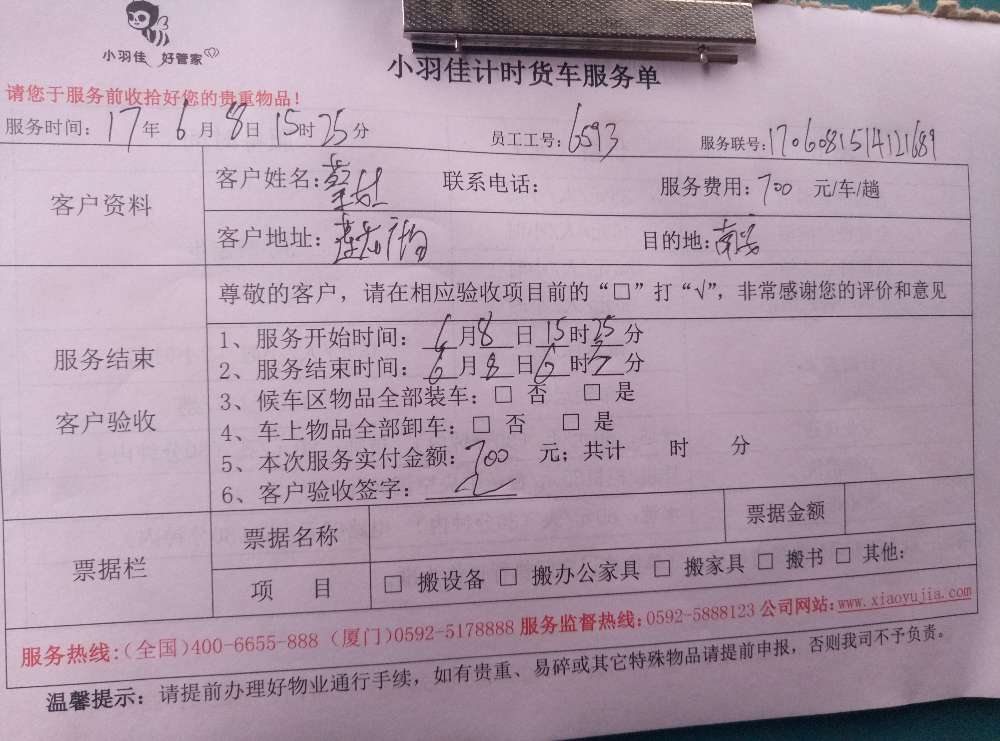 小羽佳 好管家
小羽佳计时货车服务单
请您于服务前收拾好您的贵重物品！
服务时间：17年6月8日15时25分 员工工号：6593 服务联号：1706081514121689
客户资料
客户姓名： 联系电话： 服务费用：700 元/车/趟
客户地址： 目的地：
尊敬的客户，请在相应验收项目前的“□”打“√”，非常感谢您的评价和意见
服务结束
客户验收
1、服务开始时间：6月8日15时25分
2、服务结束时间：6月8日6时7分
3、候车区物品全部装车：□ 否 □ 是
4、车上物品全部卸车：□ 否 □ 是
5、本次服务实付金额：700 元；共计 时 分
6、客户验收签字：
票据栏
票据名称 票据金额
项 目 □ 搬设备 □ 搬办公家具 □ 搬家具 □ 搬书 □ 其他：
服务热线：（全国）400-6655-888（厦门）0592-5178888 服务监督热线：0592-5888123 公司网站：www.xiaoyujia.com
温馨提示：请提前办理好物业通行手续，如有贵重、易碎或其它特殊物品请提前申报，否则我司不予负责。